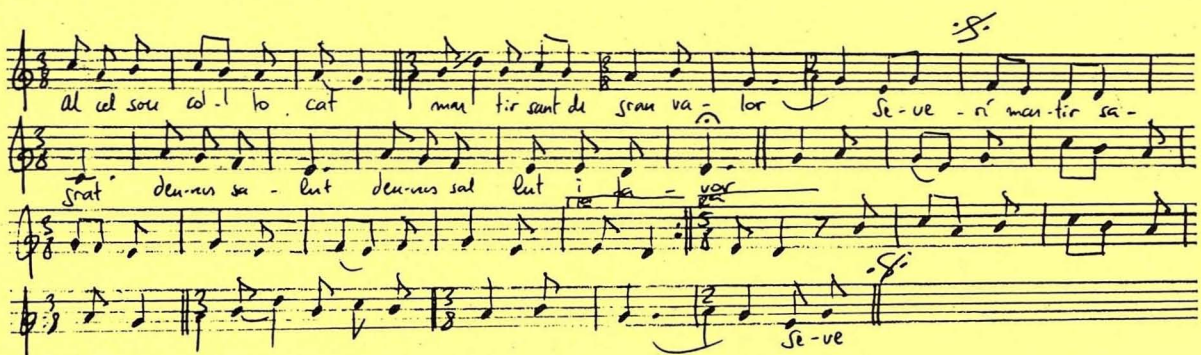 Al cel sou col-l lo cat mar tir sant de gran va - lor Se-ve - rí mar-tir sa-
grat deu-nos sa - lut deu-nos sal lut i fa - vor
Se-ve